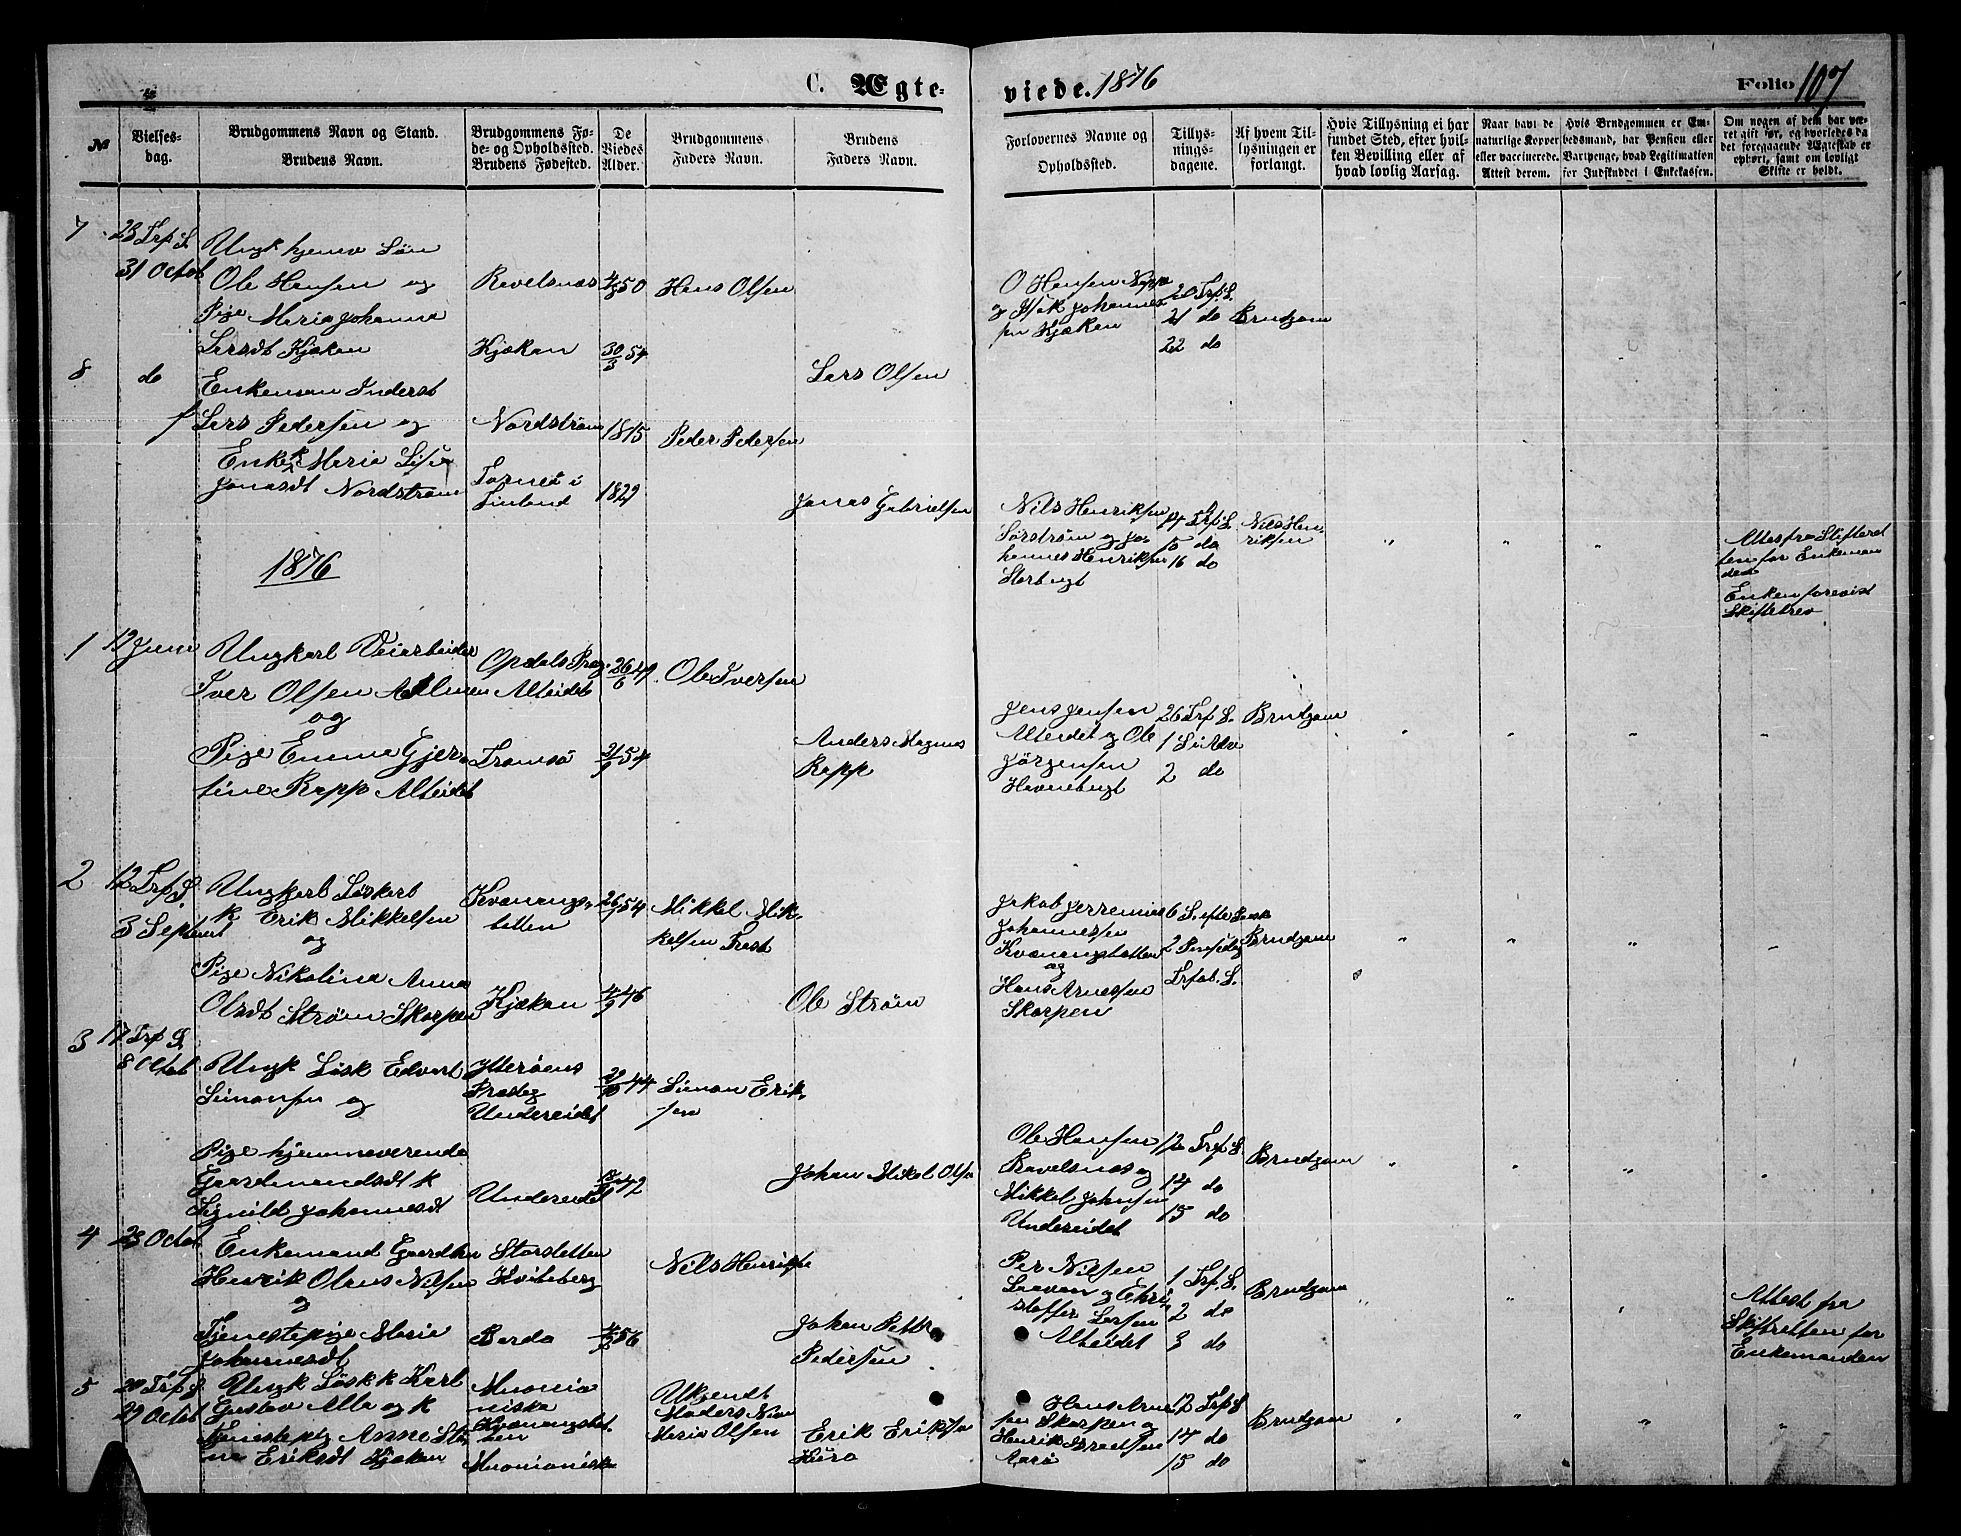 C. Ægte-
viede. 1876
Folio 107
№
Vielses-
dag.
Brudgommens Navn og Stand.
Brudens Navn.
Brudgommens Fø-
de- og Opholdssted.
Brudens Fødested.
De
Viedes
Alder.
Brudgommens
Faders Navn.
Brudens
Faders Navn.
Forlovernes Navne og
Opholdssted.
Tillys-
nings-
dagene.
Af hvem Til-
lysningen er
forlangt.
Hvis Tillysning ei har
fundet Sted, efter hvil-
ken Bevilling eller af
hvad lovlig Aarsag.
Naar havt de
naturlige Kopper
eller vaccinerede.
Attest derom.
Hvis Brudgommen er Em-
bedsmand, har Pension eller
Vartpenge, hvad Legitimation
for Indskuddet i Enkekassen.
Om nogen af dem har væ-
ret gift før, og hvorledes da
det foregaaende Ægteskab er
ophørt, samt om lovligt
Skifte er holdt.
7
23 Trf S.
31 Octob
Ungk hjemv Søn
Ole Hansen og
Pige Maria Johanna
Larsdt Kjækan
Ravelsnæs
Kjækan
30/3 54
Hans Olsen
Lars Olsen
O Hansen
og Isak Johannes
sen Kjækan
20 Trf S.
21 do
22 do
Brudgom
8
do
Enkemand Inderst
Lars Pedersen og
Enke Maria Lisa
Jonasdt Nordstrøm
Nordstrøm
Torneå i
Finland
1815
1829
Peder Pedersen
Jonas Gabrielsen
Nils Henriksen
Sørstrøm og Jo-
hannes Henriksen
Storbugt
14 Trf S.
15 do
16 do
Nils Hen-
riksen
Attest fra Skifteret
ten for Enkeman
den
Enken forevist
Skiftebrev
1876
1
12 Juni
Ungkarl Veiarbeider
Iver Olsen Aalmen
og
Pige Emma Gjer-
tine Rapp Alteidet
Opdals Præg.
Alteidet
Tromsø
26/6 49
21/9 54
Ole Iversen
Anders Magnus
Rapp
Jens Jensen
Alteidet og Ole
Jørgensen
Havnebugt
26 Trf S.
1 S i Adv
2 do
Brudgom
2
12 Trf S.
3 Septembr
Ungkarl Løskarl
k Erik Mikkelsen
og
Pige Nikolina Anna
Olsdt Strøm Skorpen
Kvænangs-
botten
Kjækan
26/1 54
4/9 46
Mikkel Mik-
kelsen Trast
Ole Strøm
Jakob Jerremias
Johannessen
Kvænangsbotten
og
Hans Arnessen
Skorpen
6 S. efter Paask
2 Pinsedag
Trfob. S.
Brudgom
3
17 Trf S.
8 Octob
Ungk Løsk Edvart
Simonsen og
Pige hjemmeværende
Gaardmandsdt k
Signild Johannesdt
Ytterøens
Præsteg
Undereidet
Undereidet
Simon Erik-
sen
Johan Mikal Olsen
Ole Hansen
Ravelsnæs og
Mikkel Johnsen
Undereidet
12 Trf S.
14 do
15 do
Brudgom
4
23 Octob
Enkemand Gaardbr
Henrik Olaus Nilsen
og
Tjenestepige Maria
Johannesdt
Storsletten
Kviteberg
Bardo
4/5 56
Nils Henriksen
Johan Petter
Pedersen
Per Nilsen
Laavan og Chri
stoffer Larsen
Alteidet
1 Trf S.
2 do
3 do
Brudgom
Attest fra
Skifteretten for
Enkemanden
5
20 Trf S
29 Octob
Ungk Løsk k Karl
Gustav Alle og k
Tjenestepig Anne Sti-
na Eriksdt Kjækan
Muonio
niska
Kvænangsbot
ten
Muonioniska
Ukjendt
Moders Navn
Maria Olsen
Erik Eriksen
Hura
Hans Arnes
sen Skorpen og
Henrik Israelsen
Aarø
12 Trf S
14 do
15 do
Brudgom